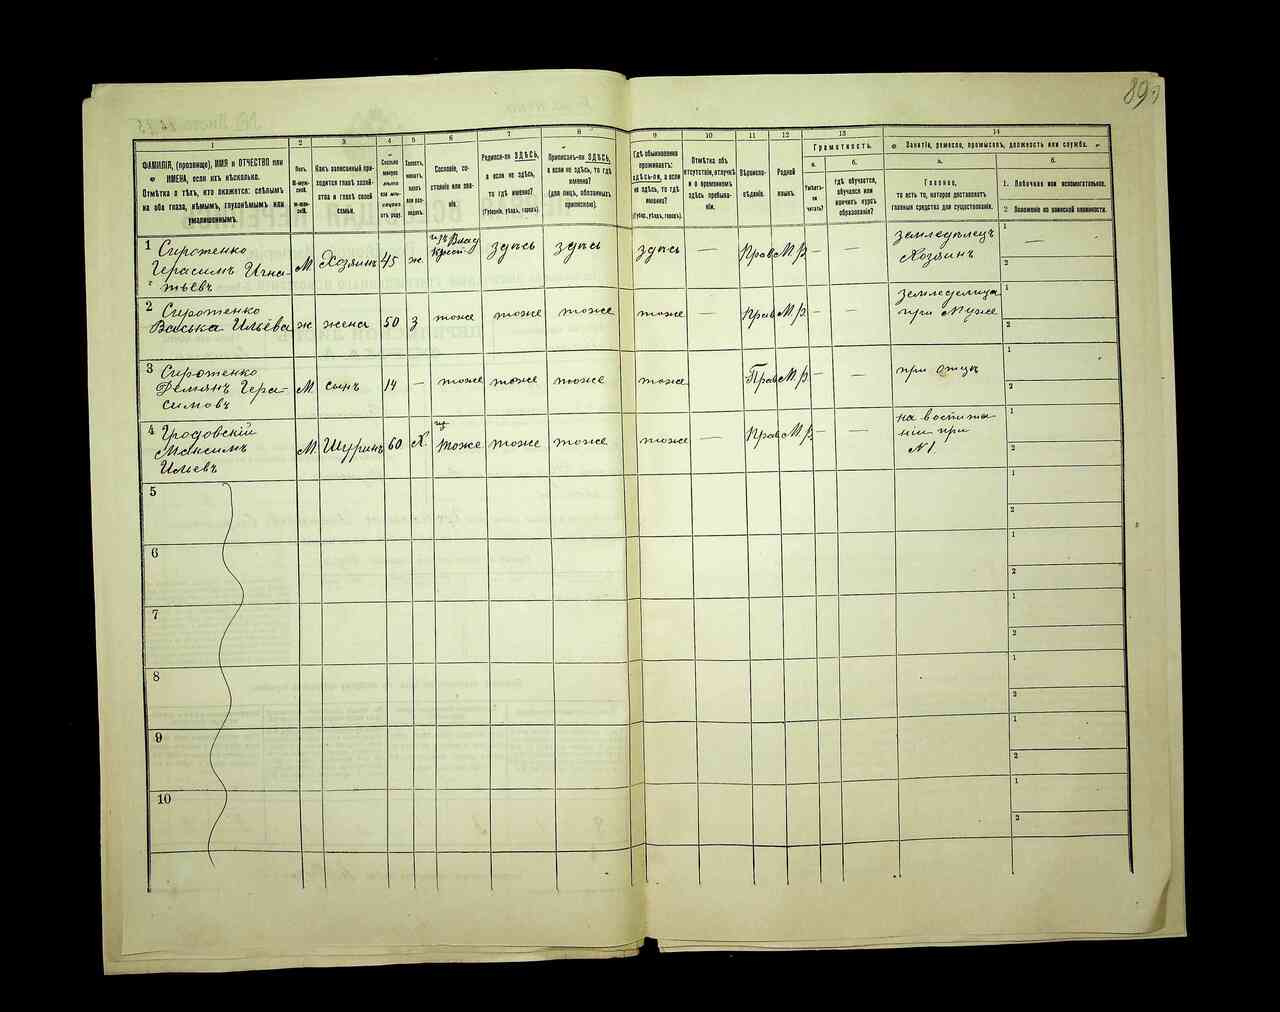 89
1 2 3 4 5 6 7 8 9 10 11 12 13 14
ФАМИЛІЯ, (прозвище), ИМЯ и ОТЧЕСТВО или
ИМЕНА, если ихъ нѣсколько.
Отмѣтка о тѣхъ, кто окажется: слѣпымъ
на оба глаза, нѣмымъ, глухонѣмымъ или
умалишеннымъ.
Полъ.
М-муж-
ской.
Ж-жен-
скій.
Какъ записанный при-
ходится главѣ хозяй-
ства и главѣ своей
семьи.
Сколько
минуло
лѣтъ
или мѣ-
сяцевъ
отъ роду.
Холостъ,
женатъ,
вдовъ
или раз-
веденъ.
Сословіе, со-
стояніе или зва-
ніе.
Родился-ли ЗДѢСЬ,
а если не здѣсь,
то гдѣ именно?
(Губернія, уѣздъ, городъ).
Приписанъ-ли ЗДѢСЬ,
а если не здѣсь, то гдѣ
именно?
(для лицъ, обязанныхъ
припискою).
Гдѣ обыкновенно
проживаетъ:
здѣсь-ли, а если
не здѣсь, то гдѣ
именно?
(Губ., уѣздъ, городъ).
Отмѣтка объ
отсутствіи, отлучкѣ
и о временномъ
здѣсь пребыва-
ніи.
Вѣроиспо-
вѣданіе.
Родной
языкъ.
Грамотность.
а. б.
Умѣетъ-
ли
читать?
гдѣ обучается,
обучался или
кончилъ курсъ
образованія?
Занятіе, ремесло, промыселъ, должность или служба.
а. б.
Главное,
то есть то, которое доставляетъ
главныя средства для существованія.
1. Побочное или вспомогательное.
2 Положеніе по воинской повинности.
1 Сироженко
Герасимъ Игна-
тьевъ
М. Хозяинъ 45 ж. изъ Влад
Крест здѣсь здѣсь здѣсь — Прав М.р. — — земледѣлецъ
Хозяинъ
1 —
2
2 Сироженко
Васька Ильева ж жена 50 з тоже тоже тоже тоже — Прав М.р. — — земледелица
при Муже
1
2
3 Сироженко
Демянъ Гера-
симовъ
М. сынъ 14 — тоже тоже тоже тоже Прав М.р. — — при отцѣ
1
2
4 Гродовскій
Максимъ
Ильевъ
М. Шуринъ 60 Х. тоже тоже тоже тоже — Прав М.р. — — на воспита-
ніи при
№1.
1
2
5
1
2
6
1
2
7
1
2
8
1
2
9
1
2
10
1
2